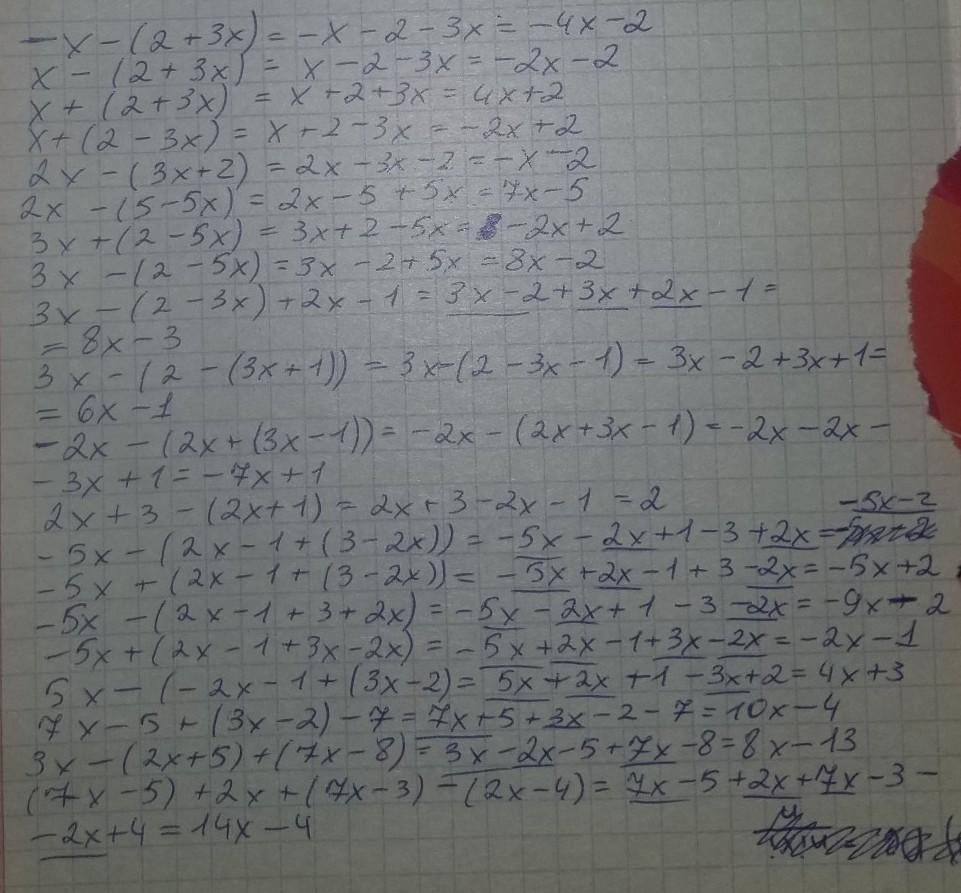 -x-(2+3x) = -x-2-3x = -4x-2
x - (2+3x) = x-2-3x = -2x-2
x + (2+3x) = x+2+3x = 4x+2
x+(2-3x) = x+2-3x = -2x+2
2x - (3x+2) = 2x-3x-2 = -x-2
2x -(5-5x) = 2x-5+5x = 7x-5
3x+(2-5x) = 3x+2-5x = -2x+2
3x -(2-5x) = 3x-2+5x = 8x-2
3x-(2-3x)+2x-1 = 3x-2+3x+2x-1 =
= 8x-3
3x-(2-(3x+1)) = 3x-(2-3x-1) = 3x-2+3x+1=
= 6x-1
-2x-(2x+(3x-1)) = -2x-(2x+3x-1) = -2x-2x-
-3x+1 = -7x+1
2x+3-(2x+1) = 2x+3-2x-1 = 2
-5x-2
-5x-(2x-1+(3-2x)) = -5x-2x+1-3+2x =
-5x+(2x-1+(3-2x)) = -5x+2x-1+3-2x = -5x+2
-5x-(2x-1+3+2x) = -5x-2x+1-3-2x = -9x-2
-5x+(2x-1+3x-2x) = -5x+2x-1+3x-2x = -2x-1
5x-(-2x-1+(3x-2) = 5x+2x+1-3x+2 = 4x+3
7x-5+(3x-2)-7 = 7x+5+3x-2-7 = 10x-4
3x-(2x+5)+(7x-8) = 3x-2x-5+7x-8 = 8x-13
(7x-5)+2x+(7x-3)-(2x-4) = 7x-5+2x+7x-3-
-2x+4 = 14x-4